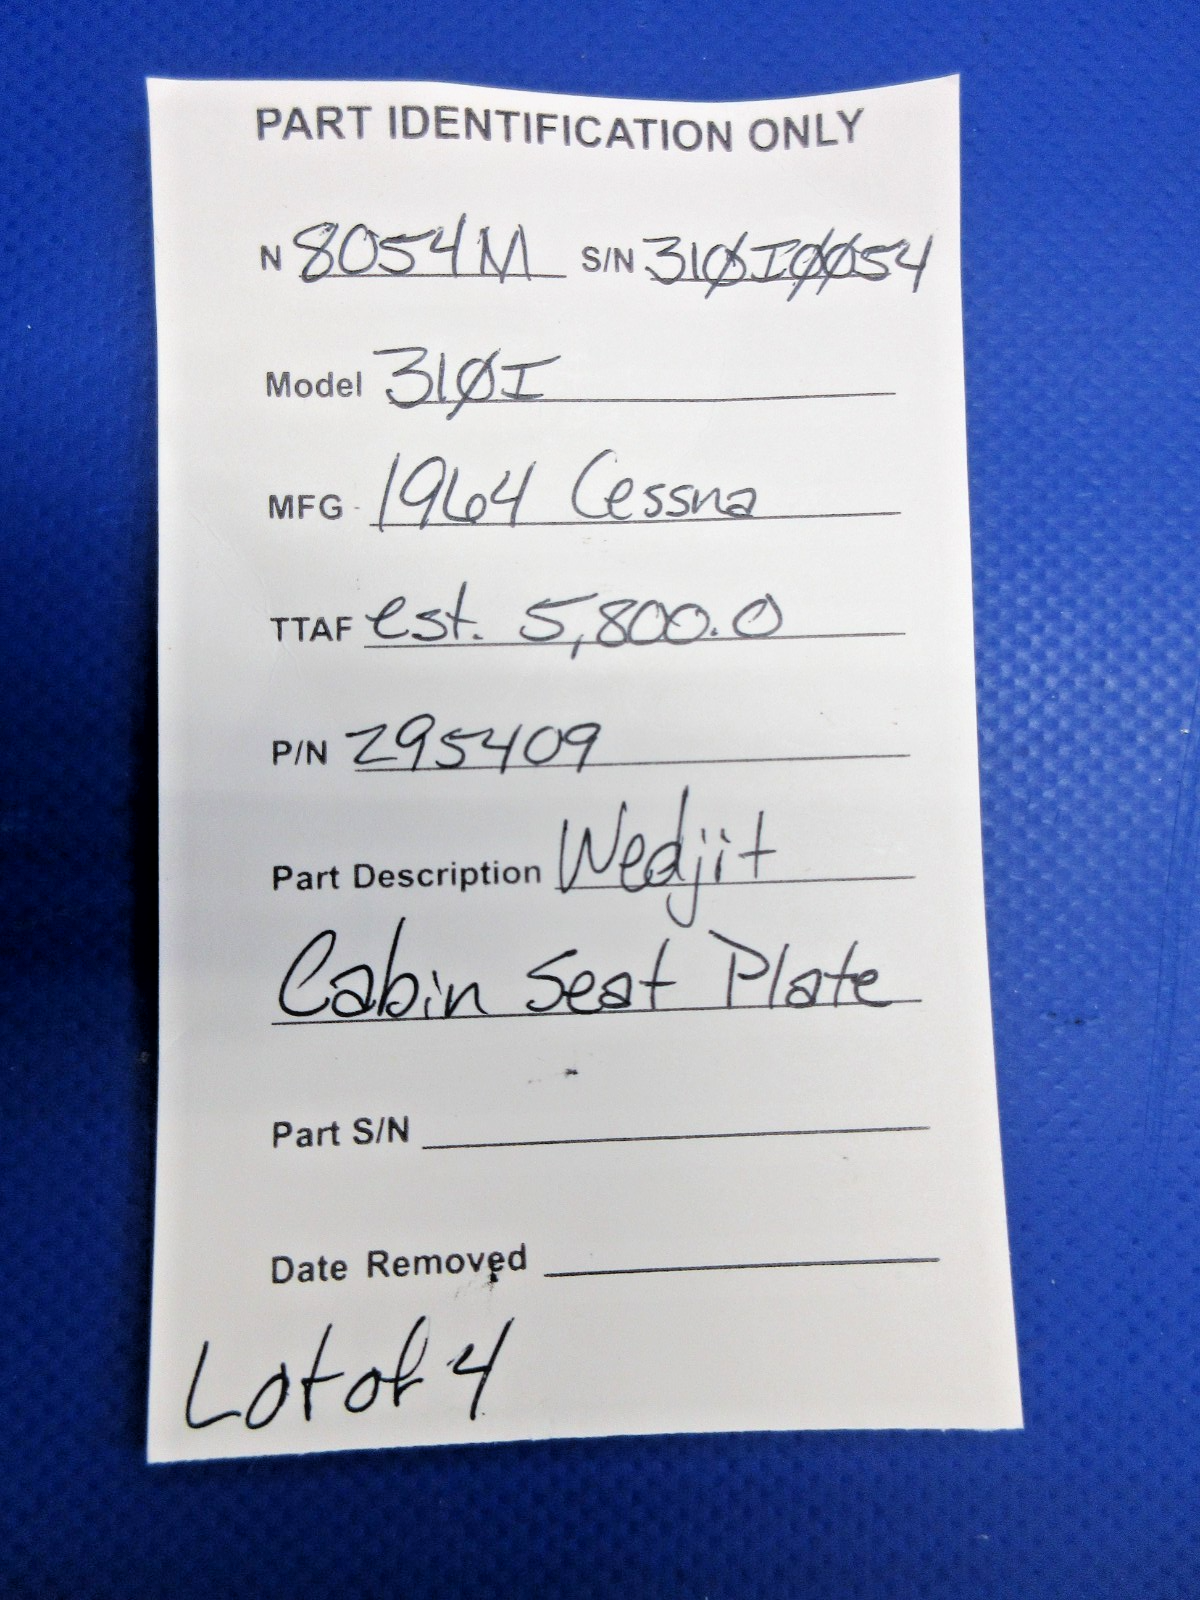 PART IDENTIFICATION ONLY
N 8054M S/N 310I0054
Model 310I
MFG 1964 Cessna
TTAF est. 5,800.0
P/N 295409
Part Description Wedjit
Cabin Seat Plate
Part S/N
Date Removed
Lot of 4